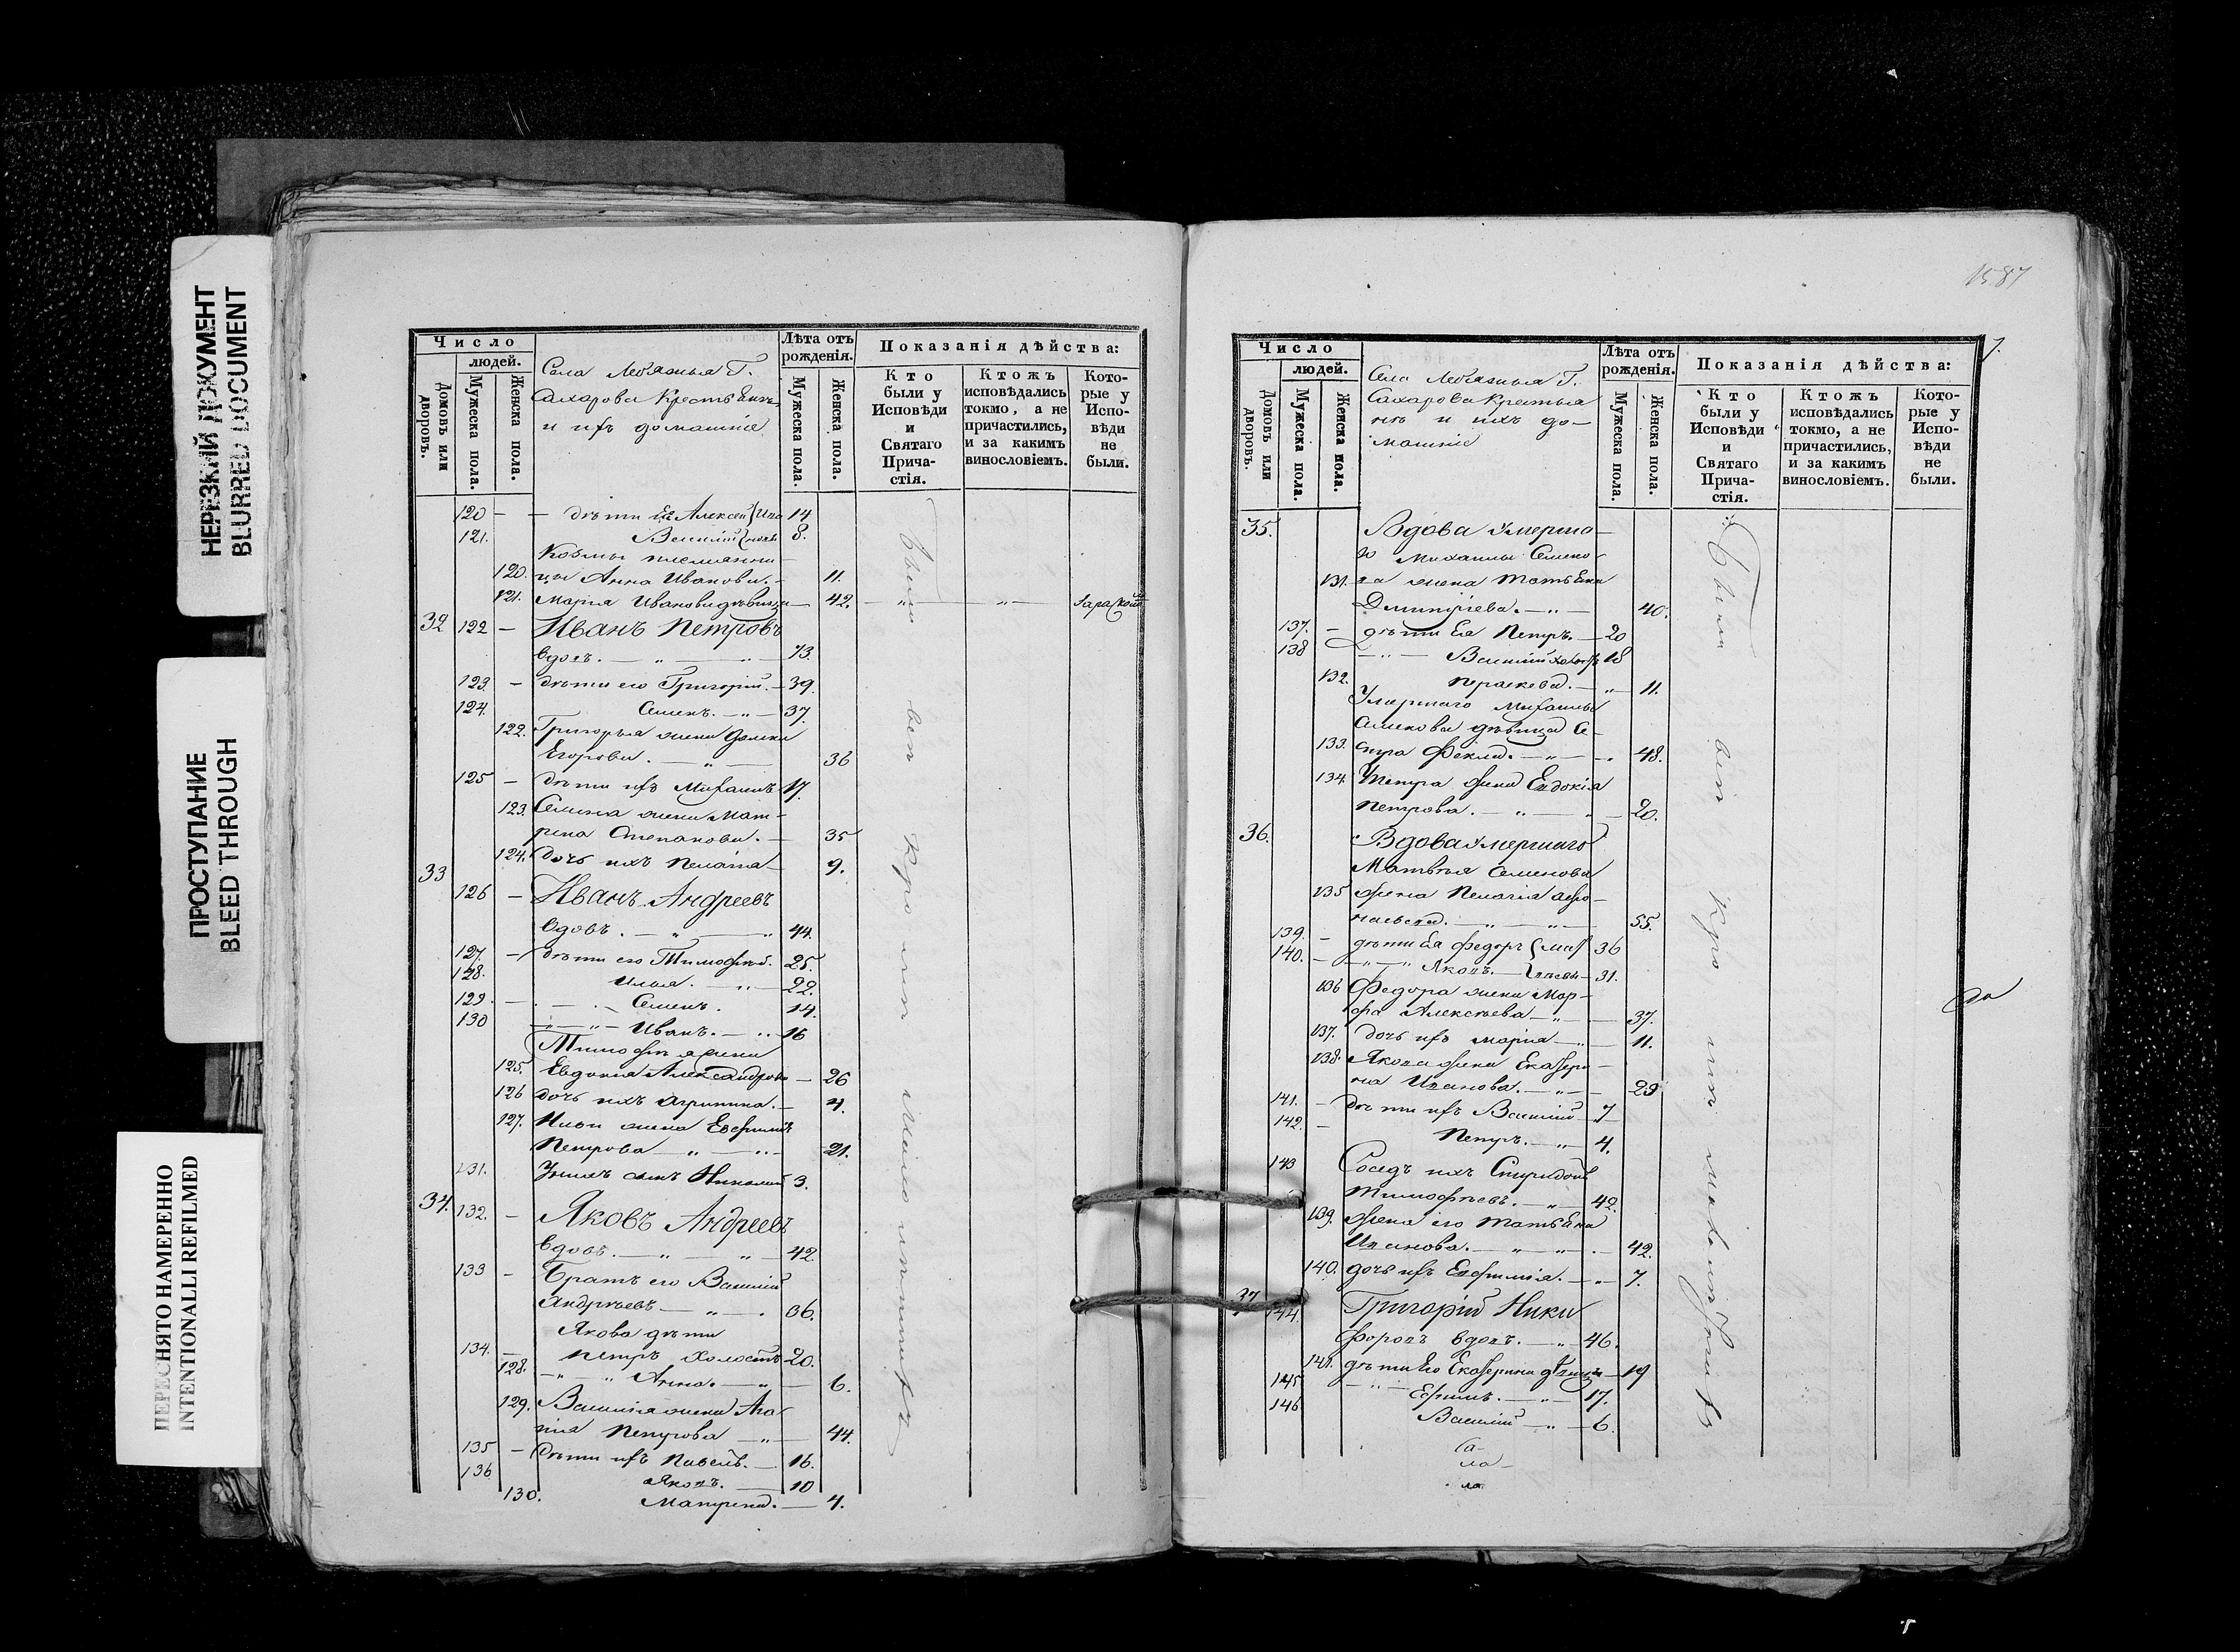 НЕРЕЗКИЙ ДОКУМЕНТ
BLURRED DOCUMENT
ПРОСТУПАНИЕ
BLEED THROUGH
ПЕРЕСНЯТО НАМЕРЕННО
INTENTIONALLI REFILMED
Число
людей.
Домовъ или дворовъ.
Мужеска пола.
Женска пола.
Села Г.
Сахарова
и ихъ домашніе
Лѣта отъ рожденія.
Мужеска пола.
Женска пола.
Показанія дѣйства:
Кто были у Исповѣди и Святаго Прича-стія.
Ктожъ исповѣдались токмо, а не причастились, и за какимъ винословіемъ.
Кото-рые у Испо-вѣди не были.
120 — — дѣти Ея Алексей 14
121. Василій 8.
Козмы племянни-
120. цы Анна Иванова. — 11.
121. Марія Иванова дѣвица — 42.
32 122 — Иванъ Петровъ
вдов. — „ — 73.
123. — дѣти его Григорій. — 39.
124. Семенъ. — „ — 37.
122. Григорья жена
Егорова. — „ — 36
125 — дѣти ихъ Михаилъ 17.
123. Семена жена Мат-
рена Степанова. — 35
124. Дочь ихъ Пелагія — 9.
33
126 — Иванъ Андреевъ
вдовъ. — „ — „ 44.
127. — дѣти его Тимофей. 25.
128. Илья. — „ — 22.
129. — Семенъ. 14.
130 — „ — „ — Иванъ. — „ — 16
Тимофѣя жена
125. Евдокія Александрова — 26
126 дочь ихъ Агрипина. — 4.
127. Ильи жена Евфимія
Петрова — „ — 21.
131. У нихъ сынъ Николай 3.
34. 132. — Яковъ Андреевъ
вдовъ. — „ — „ — 42.
133 — Братъ его Василій
Андрѣевъ — „ — 36.
Якова дѣти
134. — Петръ Холостъ 20.
128. — „ — „ Анна. — „ — 6.
129. Василія жена Ага-
пія Петрова — „ — 44.
135 — дѣти ихъ Павелъ. — 16.
136 Яковъ. — 10
130. Матрена. — 4.
1587
Число
людей.
Домовъ или дворовъ.
Мужеска пола.
Женска пола.
Села Г.
Сахарова Крестья
нѣ и ихъ до-
машніе
Лѣта отъ рожденія.
Мужеска пола.
Женска пола.
Показанія дѣйства:
Кто были у Исповѣди и Святаго Прича-стія.
Ктожъ исповѣдались токмо, а не причастились, и за какимъ винословіемъ.
Кото-рые у Испо-вѣди не были.
35. Вдова умерша-
го Михаила Семено-
131. ва жена Татьяна
Димитріева. — „ — 40.
137. — дѣти Ея Петръ. — 20
138 — „ — Василій холостъ 18
132. Параскева. — „ — 11.
Умершаго Михаила
Семенова дѣвица се-
133. стра Фекла. — „ — 48.
134. Петра жена Евдокія
Петрова. — „ — „ — 20.
36. Вдова умершаго
Матвѣя Семенова
135 жена Пелагія Афо-
насьева. — „ — „ — 55.
139. — дѣти Ея Федоръ 36
140. — „ — „ Яковъ. — 31.
136 Федора жена Мар-
фа Алексѣева — „ — 37.
137. дочь ихъ Марія — „ — 11.
138. Якова жена Екатери-
на Иванова. — „ — 29
141. — дѣти ихъ Василій — 7
142. — Петръ. — „ — 4.
143 Соседъ ихъ Спиридонъ
Тимофѣевъ. — „ — 42.
139. жена его Татьяна
Иванова. — „ — „ — 42.
140. дочь ихъ Евфимія. — „ — 7.
37 144. Григорій Ники
форовъ вдовъ. — „ — 46.
141. дѣти Его Екатерина дѣвица — 19
145 — „ — Ефимъ. — „ — 17.
146 Василій — „ — 6.